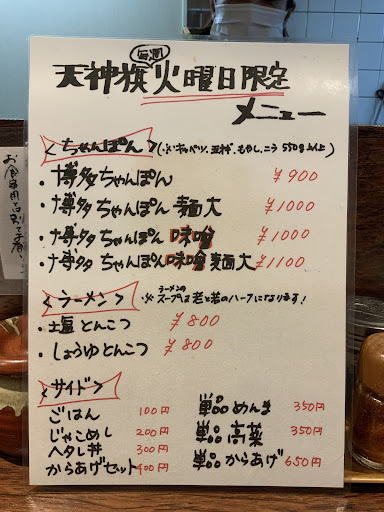 毎週
天神旗火曜日限定
メニュー
<ちゃんぽん> (※キャベツ、玉ネギ、もやし、ニラ 550g以上)
・博多ちゃんぽん ¥900
・博多ちゃんぽん麺大 ¥1000
・博多ちゃんぽん味噌 ¥1000
・博多ちゃんぽん味噌麺大 ¥1100
<ラーメン> ※ラーメンのスープは老と若のハーフになります!
・塩とんこつ ¥800
・しょうゆとんこつ ¥800
<サイド>
ごはん 100円
じゃこめし 200円
ヘタレ丼 300円
からあげセット 400円
単品めんま 350円
単品高菜 350円
単品からあげ 650円